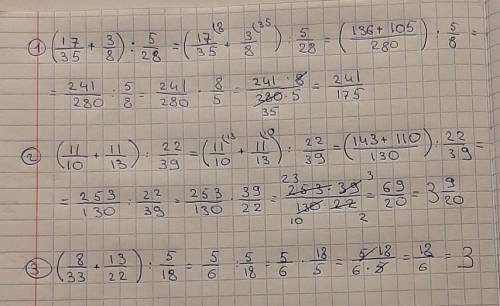 ① (17/35 + 3/8) : 5/28 = (17/35^(8 + 3/8^(35) : 5/28 = (136+105/280) : 5/8 =
= 241/280 : 5/8 = 241/280 · 8/5 = 241·8/280·5 35 = 241/175
② (11/10 + 11/13) : 22/39 = (11/10^(13 + 11/13^(10) : 22/39 = (143+110/130) : 22/39 =
= 253/130 : 22/39 = 253/130 · 39/22 = 23 253·39 3/10 130·22 2 = 69/20 = 3 9/20
③ (8/33 + 13/22) : 5/18 = 5/6 : 5/18 = 5/6 · 18/5 = 5·18/6·5 = 18/6 = 3